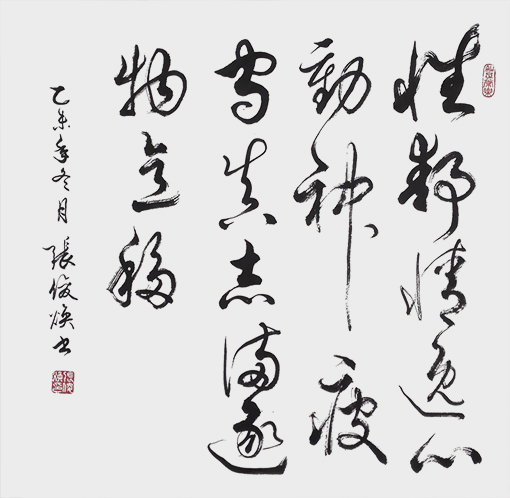 性靜情逸心
動神疲
守真志滿逐
物意移
乙未年冬月 張俊煥书